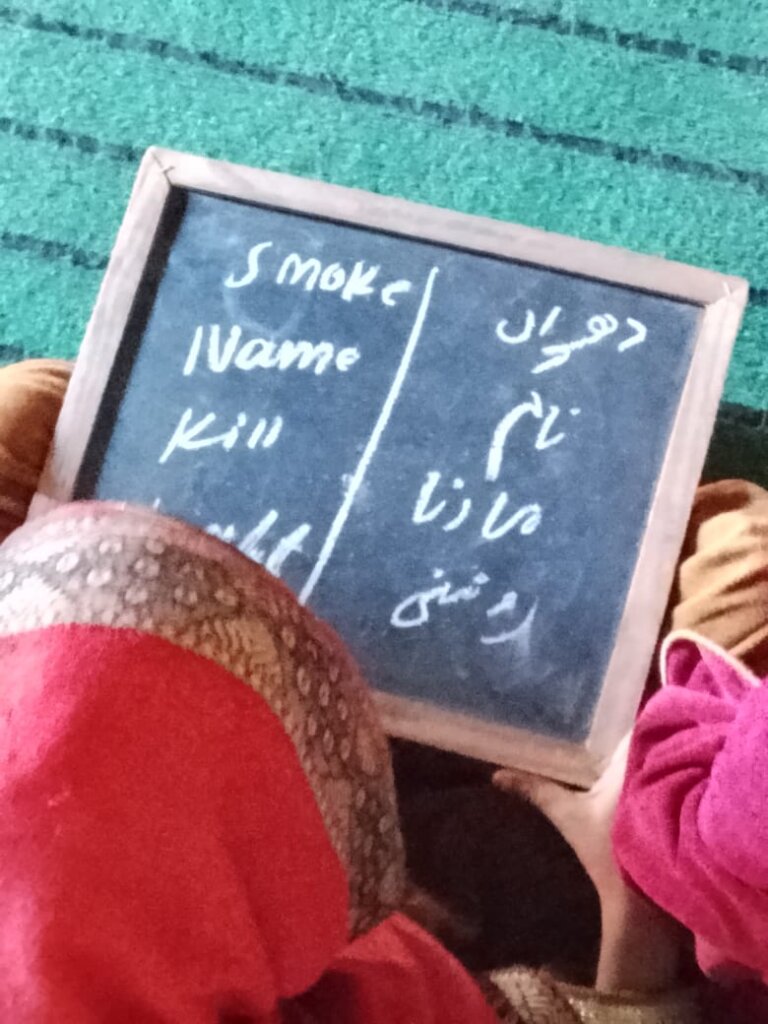 Smoke دھواں
Name نام
Kill مارنا
روشنی